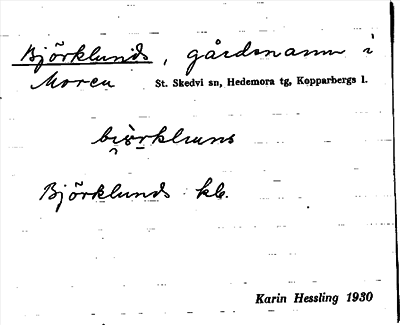 Björklunds, gårdsnamn i
Moren St. Skedvi sn, Hedemora tg, Kopparbergs l.
Björklunds kb.
Karin Hessling 1930